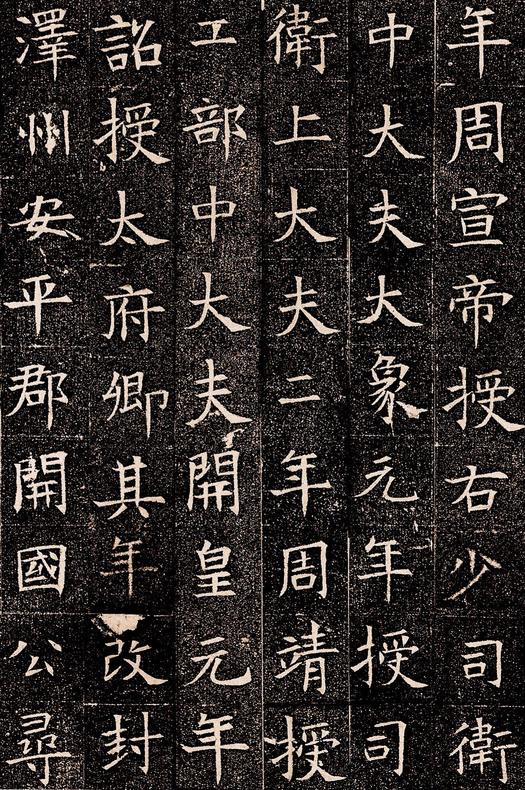 年周宣帝授右少司衛
中大夫大象元年授司
衛上大夫二年周靖授
工部中大夫開皇元年
詔授太府卿其年改封
澤州安平郡開國公尋